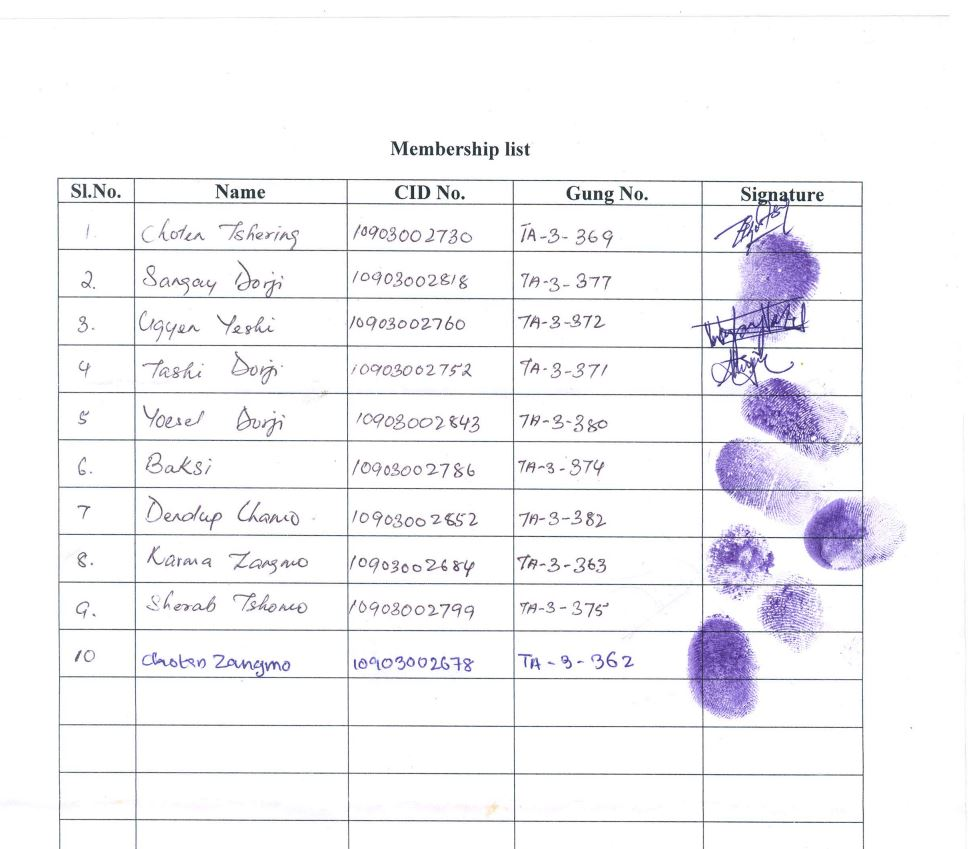 Membership list
Sl.No. Name CID No. Gung No. Signature
1. Choten Tshering 10903002730 TA-3-369
2. Sangay Dorji 10903002818 TA-3-377
3. Ugyen Yeshi 10903002760 TA-3-372
4 Tashi Dorji 10903002752 TA-3-371
5 Yoesel Dorji 10903002843 TA-3-380
6. Baksi 10903002786 TA-3-374
7 Dendup Chamo 10903002852 TA-3-382
8. Karma Zangmo 10903002684 TA-3-363
9. Sherab Tshomo 10903002799 TA-3-375
10 Choten Zangmo 10903002678 TA-3-362